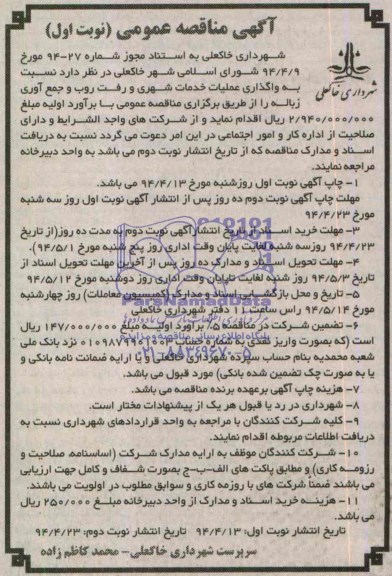 آگهی مناقصه عمومی (نوبت اول)
شهرداری خاکعلی
شهرداری خاکعلی به استناد مجوز شماره ۲۷-۹۴ مورخ
۹۴/۴/۹ شورای اسلامی شهر خاکعلی در نظر دارد نسبت
به واگذاری عملیات خدمات شهری و رفت روب و جمع آوری
زباله را از طریق برگزاری مناقصه عمومی با برآورد اولیه مبلغ
۲/۹۴۰/۰۰۰/۰۰۰ ریال اقدام نماید و از شرکت های واجد الشرایط و دارای
صلاحیت از اداره کار و امور اجتماعی در این امر دعوت می گردد نسبت به دریافت
اسناد و مدارک مناقصه که از تاریخ انتشار نوبت دوم می باشد به واحد دبیرخانه
مراجعه نمایند.
۱- چاپ آگهی نوبت اول روزشنبه مورخ ۹۴/۴/۱۳ می باشد.
مهلت چاپ آگهی نوبت دوم ده روز پس از انتشار آگهی نوبت اول روز سه شنبه
مورخ ۹۴/۴/۲۳
۳- مهلت خرید اسناد از تاریخ انتشار آگهی نوبت دوم به مدت ده روز (از تاریخ
۹۴/۴/۲۳ روزسه شنبه لغایت پایان وقت اداری روز پنج شنبه مورخ ۹۴/۵/۱).
۴- مهلت تحویل اسناد و مدارک ده روز پس از آخرین مهلت تحویل اسناد از
تاریخ ۹۴/۵/۳ روز شنبه لغایت تاپایان وقت اداری روز دوشنبه مورخ ۹۴/۵/۱۲
۵- تاریخ و محل بازگشایی اسناد و مدارک (کمیسیون معاملات) روز چهارشنبه
مورخ ۹۴/۵/۱۴ راس ساعت ۱۱ دفتر شهرداری خاکعلی
۶- تضمین شرکت در مناقصه ۵٪ برآورد اولیه مبلغ ۱۴۷/۰۰۰/۰۰۰ ریال
است (که بصورت واریز نقدی به شماره حساب نزد بانک ملی
شعبه محمدیه بنام حساب سپرده شهرداری خاکعلی و یا ارایه ضمانت نامه بانکی و
یا به صورت چک تضمین شده بانکی) مورد قبول می باشد.
۷- هزینه چاپ آگهی برعهده برنده مناقصه می باشد.
۸- شهرداری در رد یا قبول هر یک از پیشنهادات مختار است.
۹- کلیه شرکت کنندگان با مراجعه به واحد قراردادهای شهرداری نسبت به
دریافت اطلاعات مربوطه اقدام نمایند.
۱۰- شرکت کنندگان موظف به ارایه مدارک شرکت (اساسنامه، صلاحیت و
رزومه کاری) و مطابق پاکت های الف-ب-ج بصورت شفاف و کامل جهت ارزیابی
می باشند ضمنا شرکت های با روزمه کاری و سوابق مطلوب در اولویت می باشند.
۱۱- هزینه خرید اسناد و مدارک از واحد دبیرخانه مبلغ ۲۵۰/۰۰۰ ریال
می باشد.
تاریخ انتشار نوبت اول: ۹۴/۴/۱۳ تاریخ انتشار نوبت دوم: ۹۴/۴/۲۳
سرپرست شهرداری خاکعلی- محمد کاظم زاده
ParsNamadData